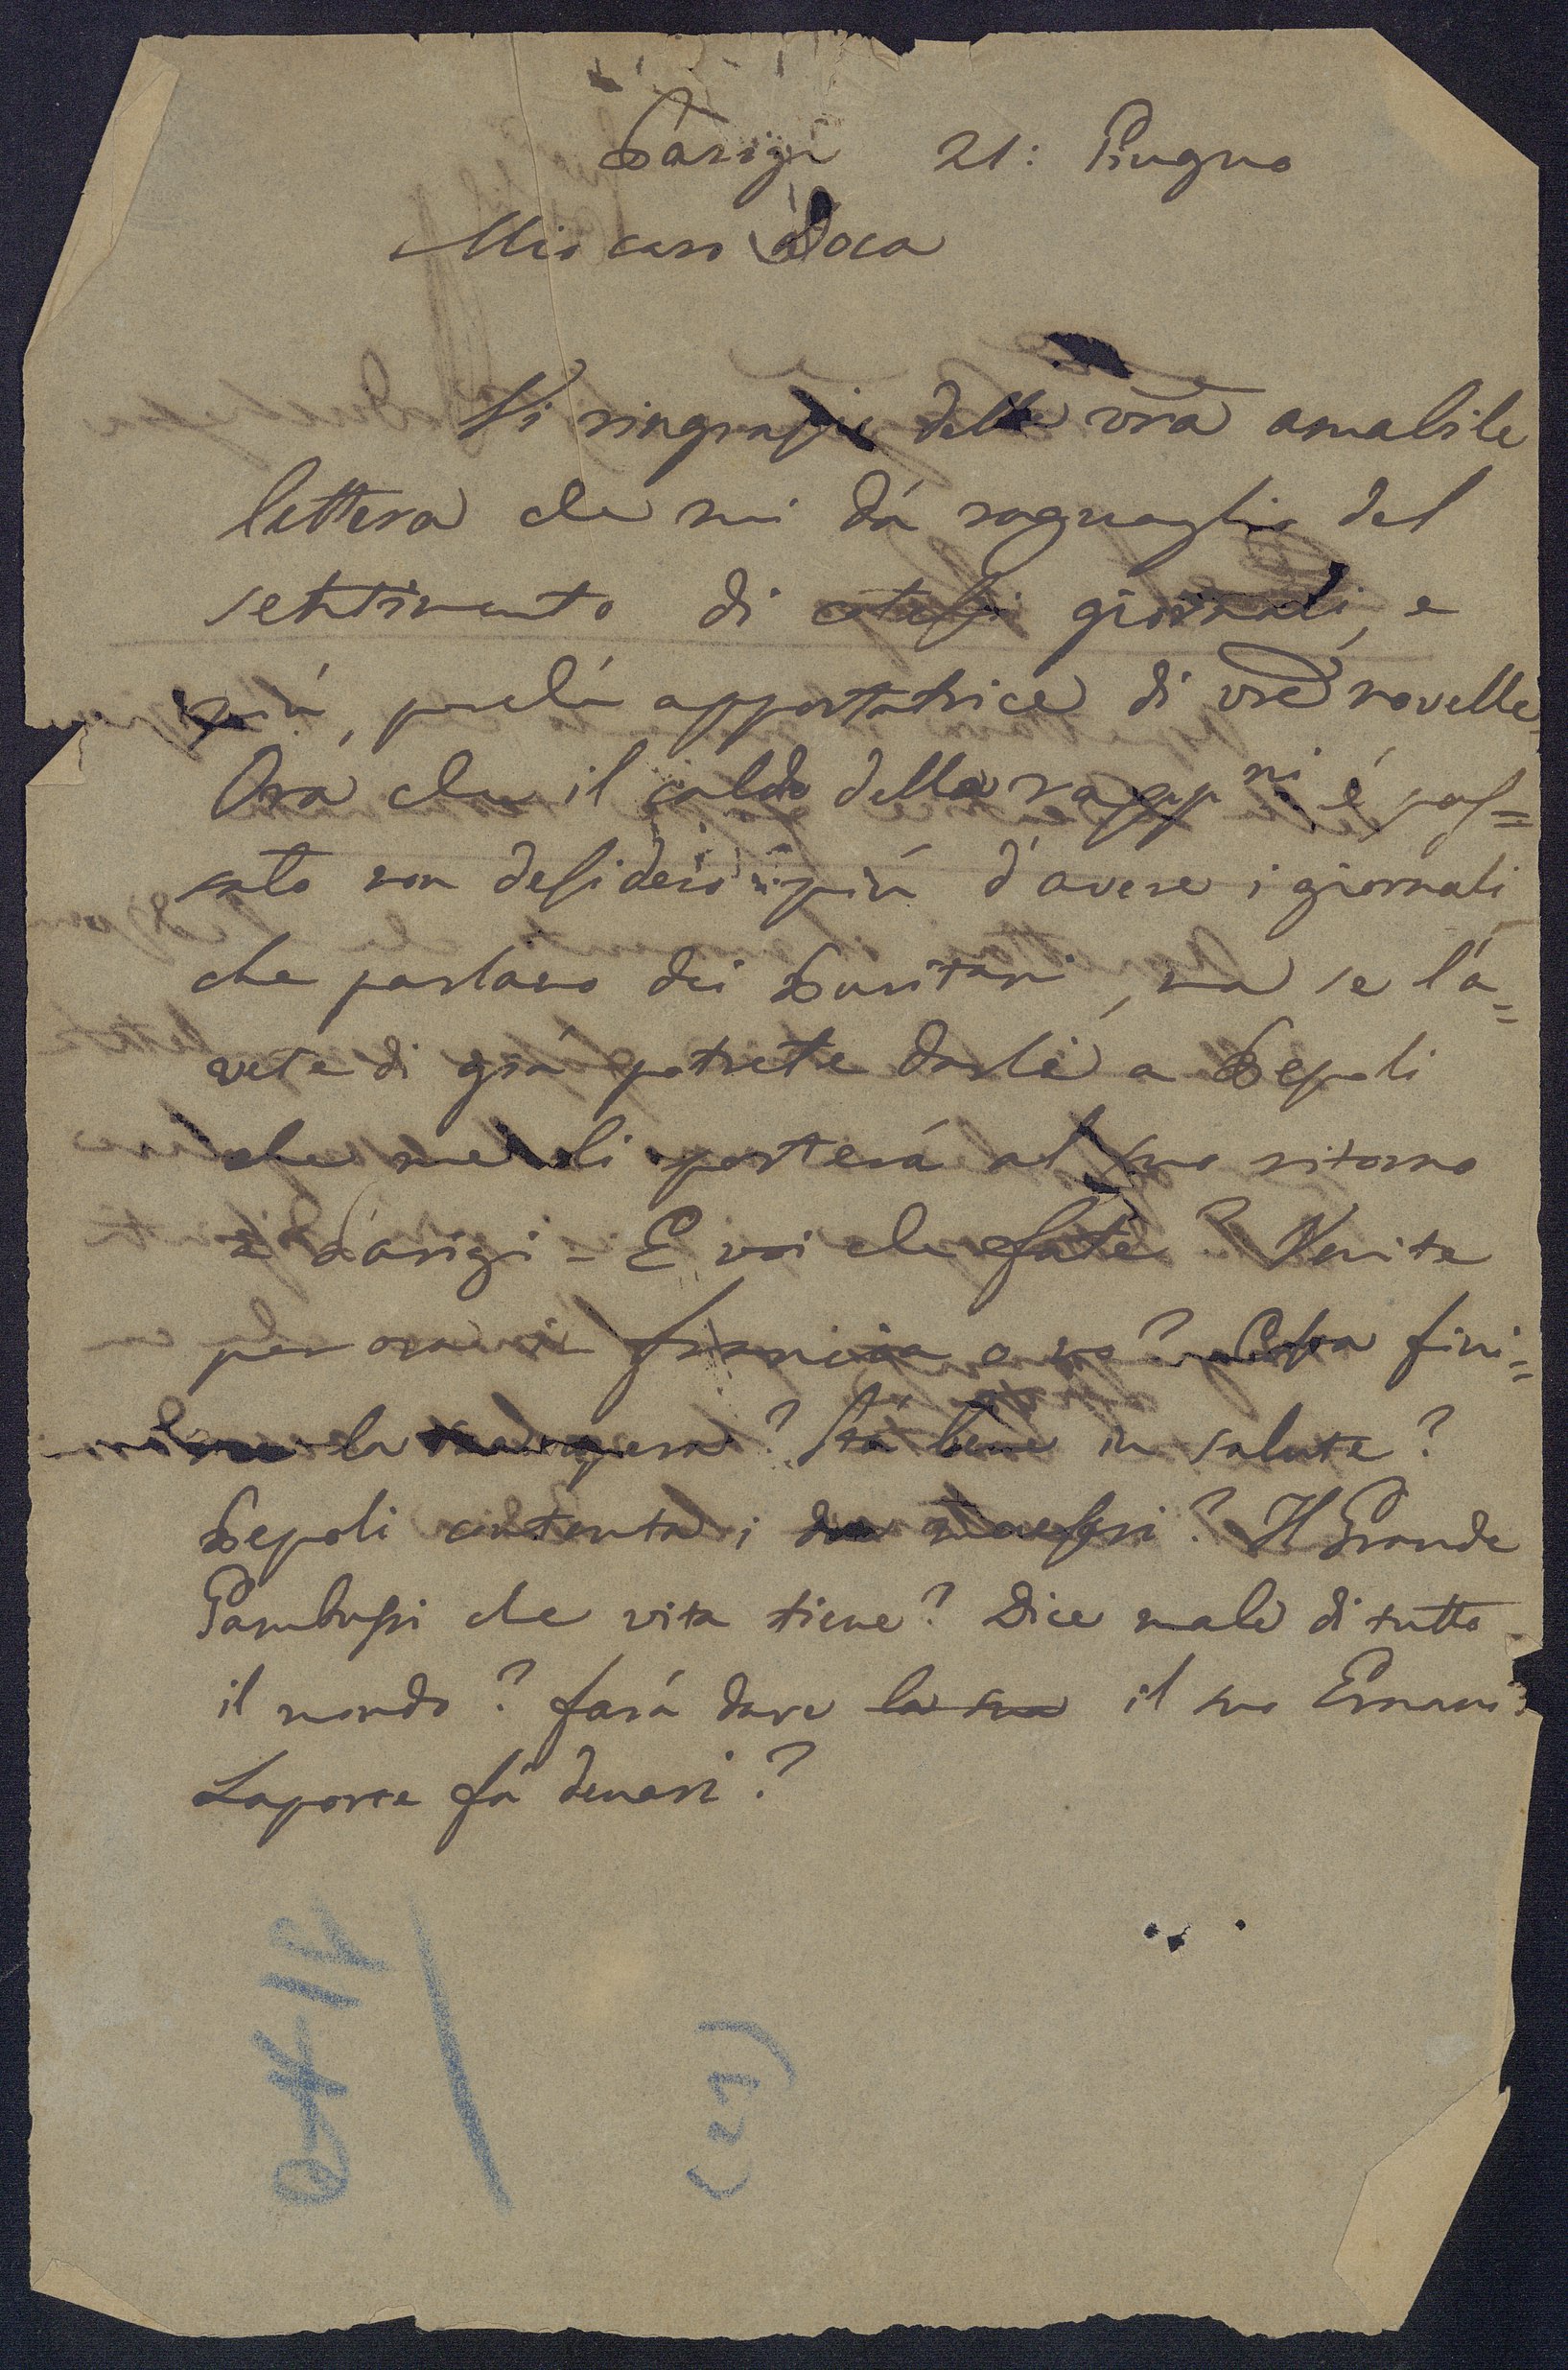 Parigi 21: Giugno
Mio caro Doca
Vi ringrazio della vr̃a amabile
lettera che mi dá raguaglio del
sentimento di cotesti giornali, e
piú, perché apportatrice di vr̃e novelle.
Ora che il caldo delle rappni é pas=
sato non desidero piú d'avere i giornali
che parlano dei Puritani, ma se l'a=
vete di giá potrete darli a Pepoli
che me li porterá al suo ritorno
a Parigi - E voi che fate? Venite
per ora in Francia o no? Cosa fini=
la? Stá bene in salute?
Pepoli contenta i due maestri? Il Grande
Gambussi che vita tiene? Dice male di tutto
il mondo? fará dare la sua il suo Ernani?
Laporte fá denari?
(27)